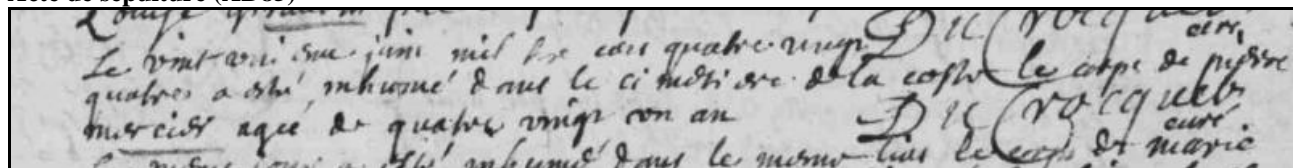 Acte de sépulture
Du Crocquet
curé
Le vint uni eme juin mil sis cens quatre vingt
quatres a esté inhumé dans le cimetiere de la coste le corps de pierre
mercier agé de quatre vingt un an Du Crocquet
curé
le mesme jour a esté inhumé dans le mesme lieu le corps de marie